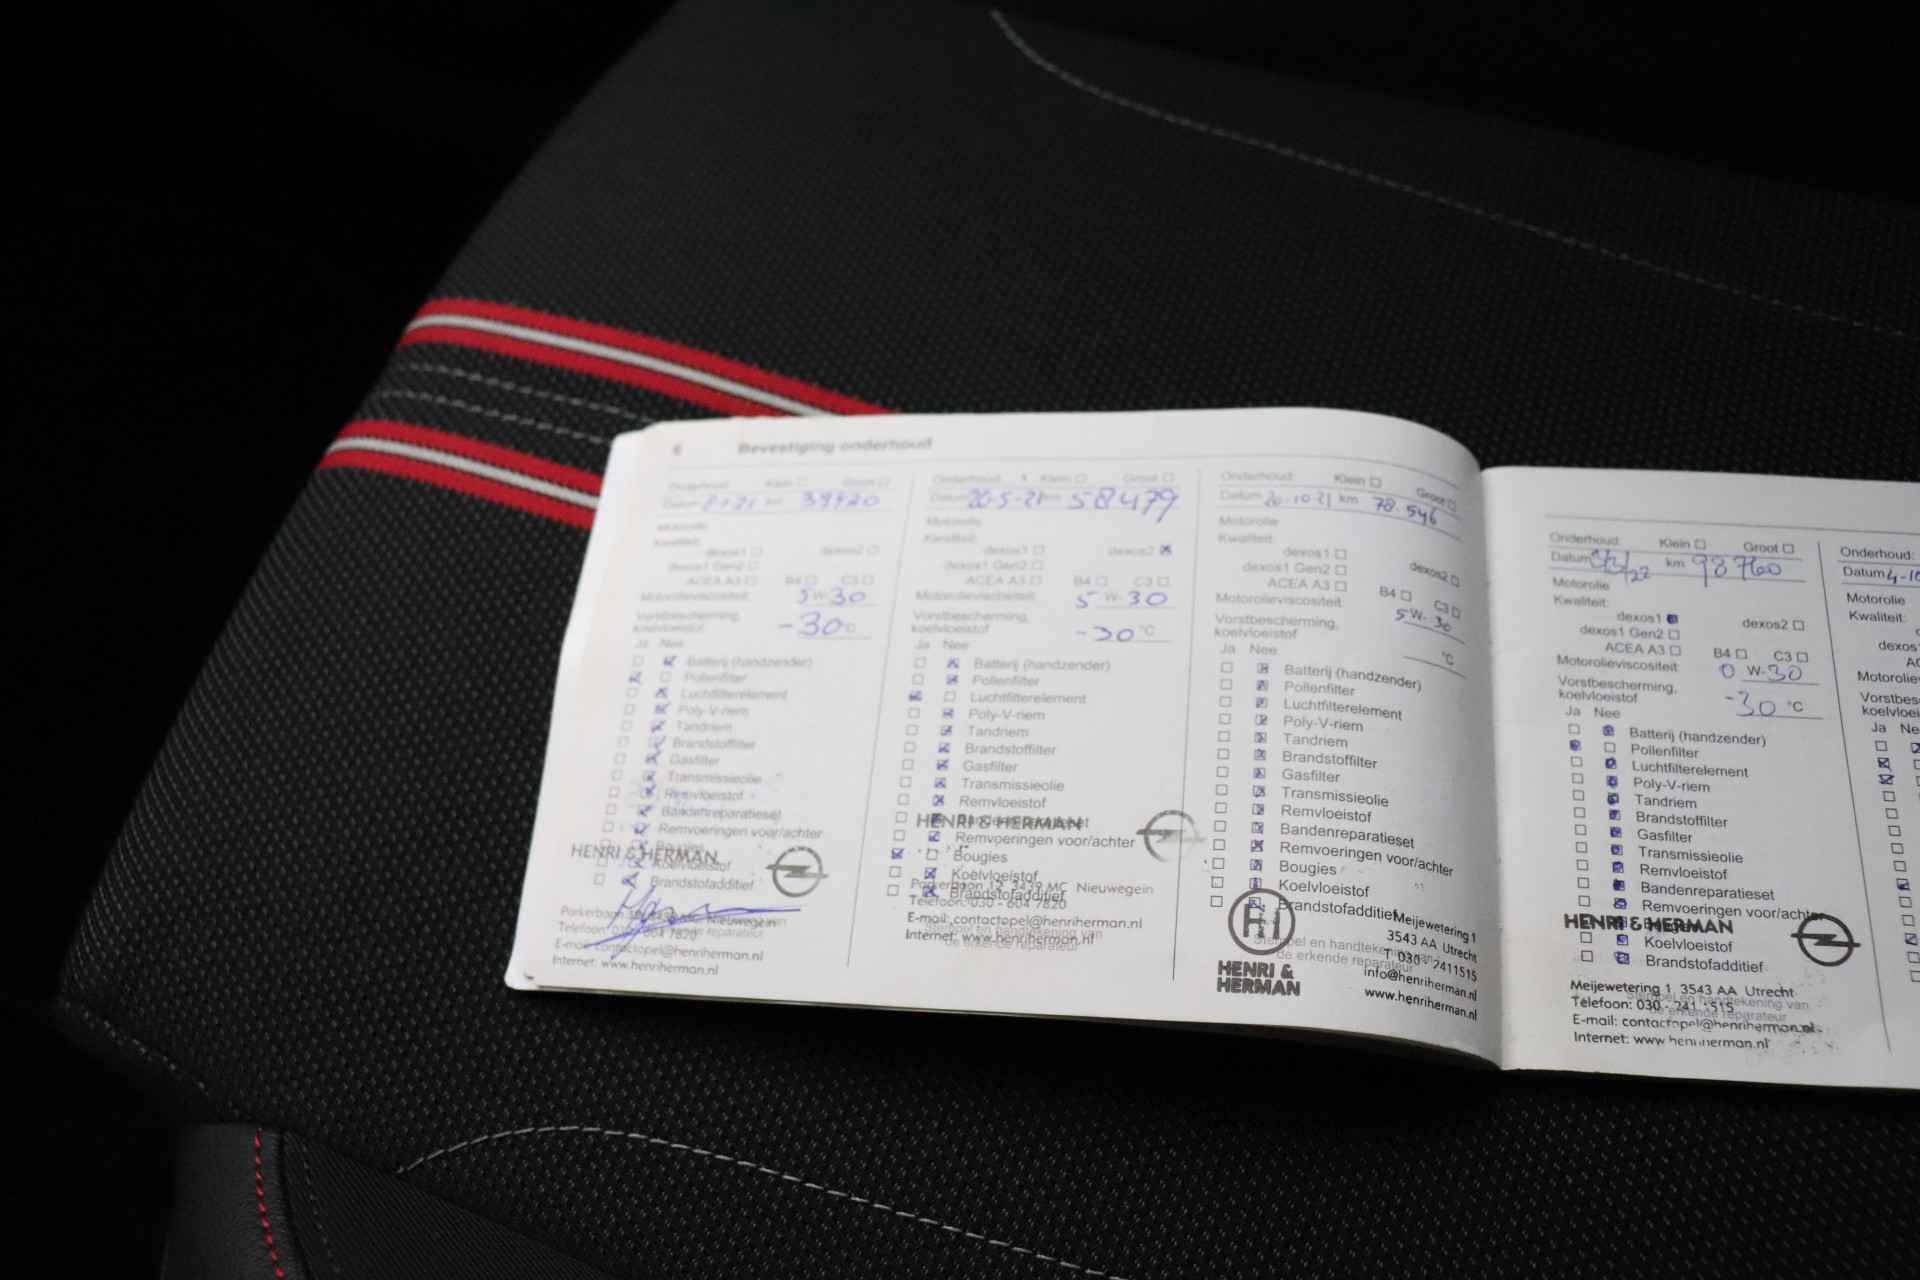 6 Bevestiging onderhoud
Onderhoud: Klein Groot
Datum km 39420
Motorolie
Kwaliteit:
dexos1 dexos2
dexos1 Gen2
ACEA A3 B4 C3
Motorolieviscositeit: 5 W-30
Vorstbescherming,
koelvloeistof -30 °C
Ja Nee
Batterij (handzender)
Pollenfilter
Luchtfilterelement
Poly-V-riem
Tandriem
Brandstoffilter
Gasfilter
Transmissieolie
Remvloeistof
Bandenreparatieset
Remvoeringen voor/achter
Bougies
HENRI & HERMAN
Koelvloeistof
Brandstofadditief
Parkerbaan 12, 3439 MC Nieuwegein
Telefoon: 030 - 604 7820
E-mail: contactopel@henriherman.nl
Internet: www.henriherman.nl
Onderhoud: Klein Groot
Datum 20-5-21 km 58479
Motorolie
Kwaliteit:
dexos1 dexos2
dexos1 Gen2
ACEA A3 B4 C3
Motorolieviscositeit: 5 W-30
Vorstbescherming,
koelvloeistof -30 °C
Ja Nee
Batterij (handzender)
Pollenfilter
Luchtfilterelement
Poly-V-riem
Tandriem
Brandstoffilter
Gasfilter
Transmissieolie
Remvloeistof
Bandenreparatieset
HENRI & HERMAN
Remvoeringen voor/achter
Bougies
Koelvloeistof
Parkerbaan 12, 3439 MC Nieuwegein
Brandstofadditief
Telefoon: 030 - 604 7820
E-mail: contactopel@henriherman.nl
Stempel en handtekening van
Internet: www.henriherman.nl
de erkende reparateur
Onderhoud: Klein Groot
Datum 20-10-21 km 78.546
Motorolie
Kwaliteit:
dexos1 dexos2
dexos1 Gen2
ACEA A3 B4 C3
Motorolieviscositeit: 5 W-30
Vorstbescherming,
koelvloeistof °C
Ja Nee
Batterij (handzender)
Pollenfilter
Luchtfilterelement
Poly-V-riem
Tandriem
Brandstoffilter
Gasfilter
Transmissieolie
Remvloeistof
Bandenreparatieset
Remvoeringen voor/achter
Bougies
Koelvloeistof
Brandstofadditief
Meijewetering 1
3543 AA Utrecht
Stempel en handtekening van
T 030 - 2411515
de erkende reparateur
HENRI &
HERMAN
info@henriherman.nl
www.henriherman.nl
Onderhoud: Klein Groot
Datum km 98760
Motorolie
Kwaliteit:
dexos1 dexos2
dexos1 Gen2
ACEA A3 B4 C3
Motorolieviscositeit: 0 W-30
Vorstbescherming,
koelvloeistof -30 °C
Ja Nee
Batterij (handzender)
Pollenfilter
Luchtfilterelement
Poly-V-riem
Tandriem
Brandstoffilter
Gasfilter
Transmissieolie
Remvloeistof
Bandenreparatieset
Remvoeringen voor/achter
HENRI & HERMAN
Bougies
Koelvloeistof
Brandstofadditief
Meijewetering 1, 3543 AA Utrecht
Stempel en handtekening van
Telefoon: 030 - 241 1515
de erkende reparateur
E-mail: contactopel@henriherman.nl
Internet: www.henriherman.nl
Onderhoud:
Datum 4-10
Motorolie
Kwaliteit:
dexos
AC
Motorolievis
Vorstbesc
koelvloei
Ja Ne